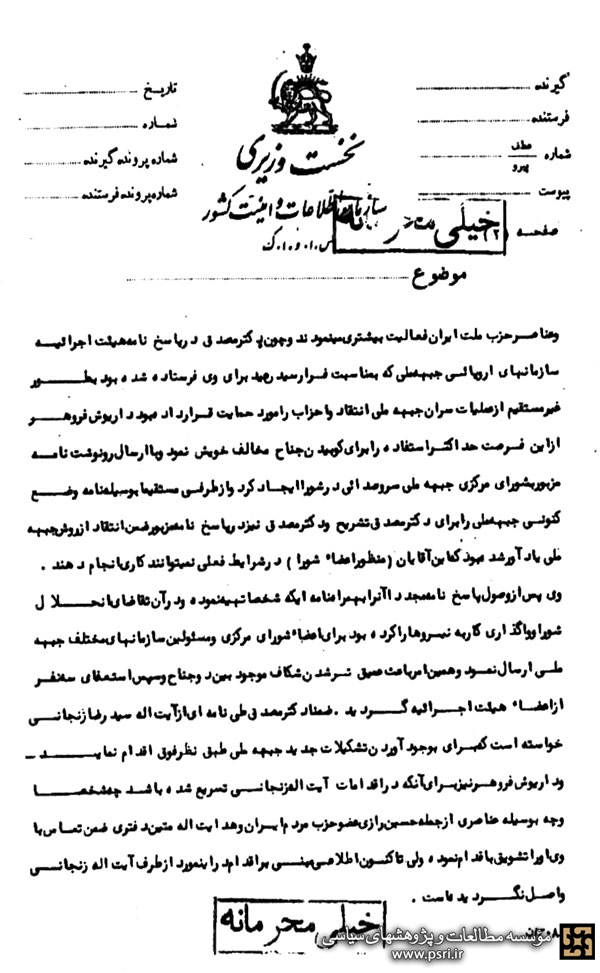 گیرنده
فرستنده
شماره عطف پیرو
پیوست
صفحه (۲)
تاریخ
شماره
شماره پرونده گیرنده
شماره پرونده فرستنده
نخست وزیری
سازمان اطلاعات و امنیت کشور
س.ا.و.ا.ک
خیلی محرمانه
موضوع
وعناصر حزب ملت ایران فعالیت بیشتری مینمودند وچون دکتر مصدق در پاسخ نامه هیئت اجرائیه
سازمانهای اروپائی جبهه ملی که بمناسبت فرارسید عید برای وی فرستاده شده بود بطور
غیر مستقیم از عملیات سران جبهه ملی انتقاد واحزاب را مورد حمایت قرار داده بود داریوش فروهر
از این فرصت حداکثر استفاده را برای کوبیدن جناح مخالف خویش نمود وبا ارسال رونوشت نامه
مزبور بشورای مرکزی جبهه ملی سروصدائی در شورا ایجاد کرد واز طرفی مستقیما بوسیله نامه وضع
کنونی جبهه ملی را برای دکتر مصدق تشریح ودکتر مصدق نیز در پاسخ نامه مزبور ضمن انتقاد از روش جبهه
ملی یادآور شده بود که این آقایان (منظور اعضاء شورا) در شرایط فعلی نمیتوانند کاری انجام دهند.
وی پس از وصول پاسخ نامه مجددا آنرا بهمراه نامه ایکه شخصا تهیه نموده ودر آن تقاضای انحلال
شورا وواگذاری کار به نیروها را کرده بود برای اعضاء شورای مرکزی ومسئولین سازمانهای مختلف جبهه
ملی ارسال نمود وهمین امر باعث عمیق تر شدن شکاف موجود بین دو جناح وسپس استعفای سه نفر
از اعضاء هیئت اجرائیه گردید. ضمنا دکتر مصدق طی نامه ای از آیت اله سید رضا زنجانی
خواسته است که برای بوجود آوردن تشکیلات جدید جبهه ملی طبق نظر فوق اقدام نماید ـ
وداریوش فروهر نیز برای آنکه در اقدامات آیت اله زنجانی تسریع شده باشد چه شخصا
وچه بوسیله عناصری از جمله حسین رازی عضو حزب مردم ایران وهدایت اله متین دفتری ضمن تماس با
وی اورا تشویق باقدام نموده ولی تاکنون اطلاعی مبنی براقدام در اینمورد از طرف آیت اله زنجانی
واصل نگردیده است.
خیلی محرمانه
موسسه مطالعات و پژوهشهای سیاسی
www.psri.ir